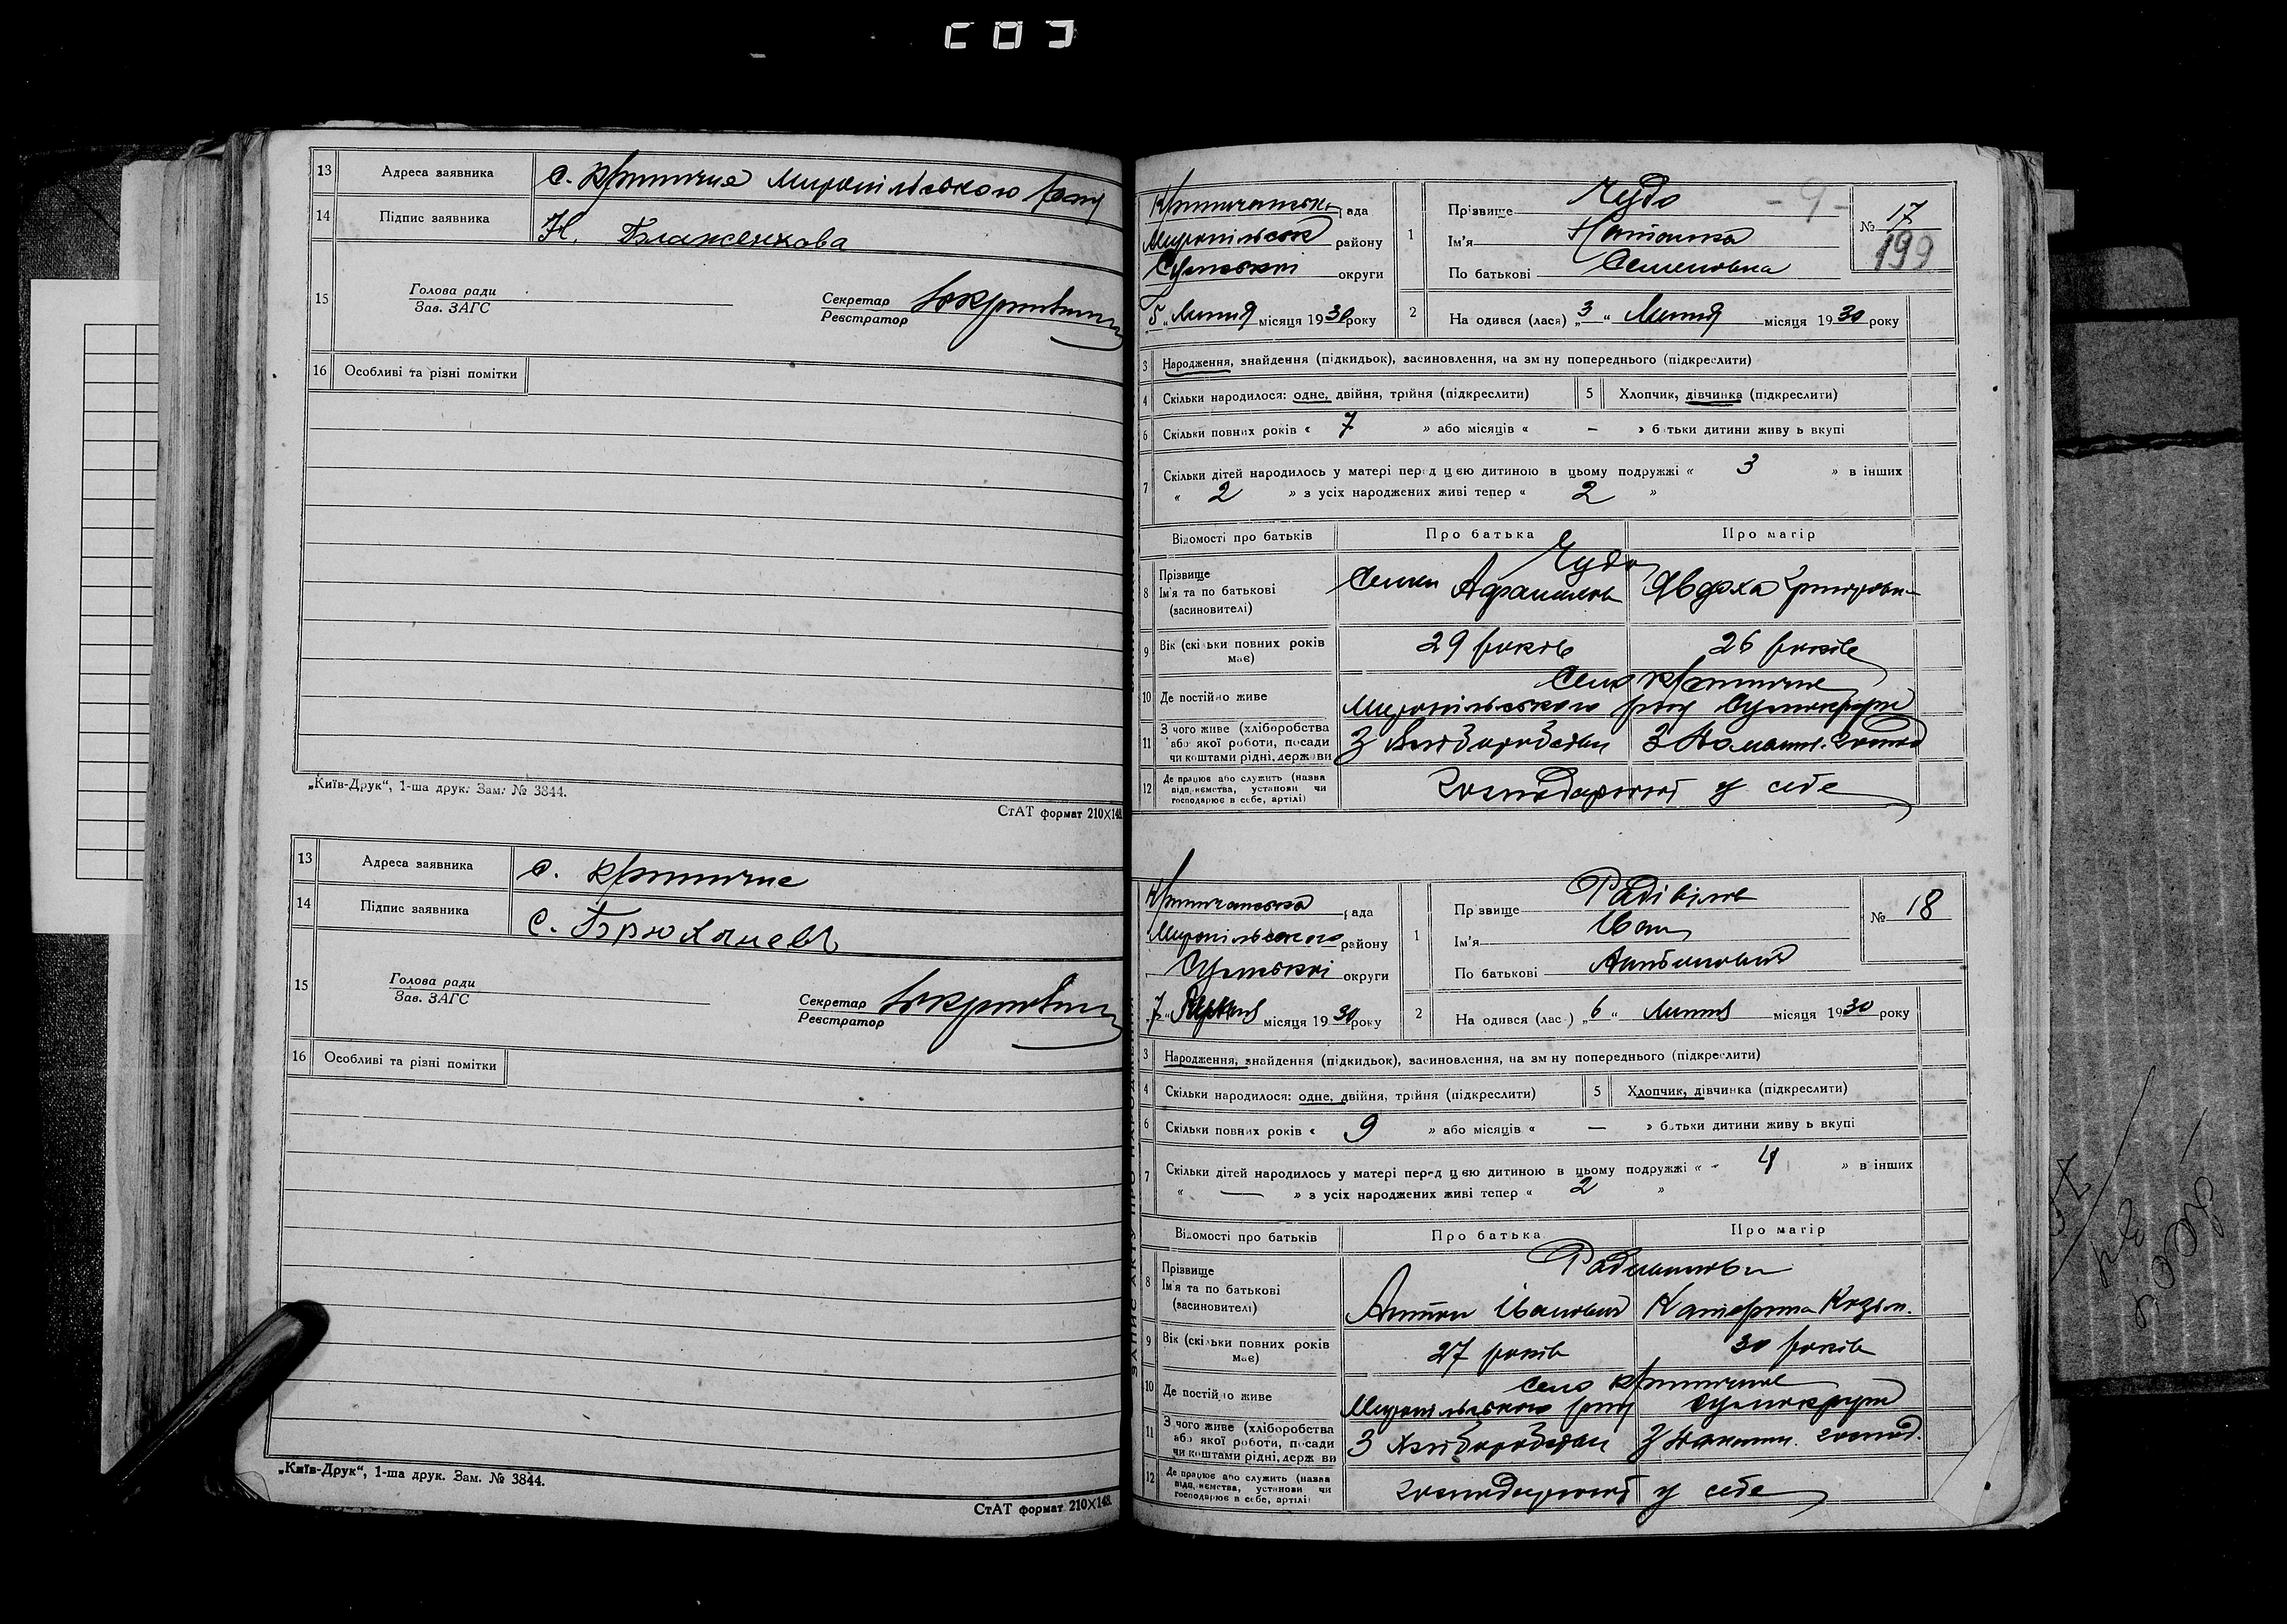 13 Адреса заявника с. Криничне Миропільського рану
14 Підпис заявника Н. Блаженкова
15 Голова ради
Зав. ЗАГС
Секретар
Реєстратор
16 Особливі та різні помітки
„Київ-Друк“, 1-ша друк. Зам. № 3844.
СтАТ формат 210Х148.
13 Адреса заявника с. Криничне
14 Підпис заявника С. Брюханев
15 Голова ради
Зав. ЗАГС
Секретар
Реєстратор
16 Особливі та різні помітки
„Київ-Друк“, 1-ша друк. Зам. № 3844.
СтАТ формат 210Х148.
рада
Миропільськ району
Сумської округи
5 „ Липня місяця 1930 року
1 Прізвище Чудо
Ім'я Наталка
По батькові Семеновна
- 9 -
№ 17
199
2 На одився (лася) „ 3 “ Липня місяця 1930 року
3 Народження, знайдення (підкидьок), засиновлення, на зм ну попереднього (підкреслити)
4 Скільки народилося: одне, двійня, трійня (підкреслити) 5 Хлопчик, дівчинка (підкреслити)
6 Скільки повних років « 7 » або місяців « — » батьки дитини живу ь вкупі
7 Скільки дітей народилось у матері перед цією дитиною в цьому подружжі « 3 » в інших
« 2 » з усіх народжених живі тепер « 2 »
Відомості про батьків Про батька Про матір
Чудо
8 Прізвище
Ім'я та по батькові
(засиновителі)
Семен Явдоха
9 Вік (скільки повних років має) 29 років 26 років
10 Де постійно живе Село Криничне
Миропільського рану Сумокруги
11 З чого живе (хліборобства
або якої роботи, посади
чи коштами рідні, держави
З Хліборобства З Домашн. господ
12 Де працює або служить (назва
підприємства, установи чи
господарює в себе, артілі)
господарюют у себе
Криничанська рада
Миропільського району
Сумської округи
„ 7 “ місяця 1930 року
1 Пр звище Радівілов
Ім'я Иван
По батькові Антонович
№ 18
2 На одився (лас ) „ 6 “ Липня місяця 1930 року
3 Народження, знайдення (підкидьок), засиновлення, на зм ну попереднього (підкреслити)
4 Скільки народилося: одне, двійня, трійня (підкреслити) 5 Хлопчик, дівчинка (підкреслити)
6 Скільки повних років « 9 » або місяців « — » батьки дитини живу ь вкупі
7 Скільки дітей народилось у матері перед цією дитиною в цьому подружжі « 4 » в інших
« — » з усіх народжених живі тепер « 2 »
Відомості про батьків Про батька Про матір
8 Прізвище
Ім'я та по батькові
(засиновителі)
Антон Іванович Катерина Козьм.
9 Вік (скільки повних років має) 27 років 30 років
10 Де постійно живе село Криничне
Миропільського рану Сумокруги
11 З чого живе (хліборобства
або якої роботи, посади
чи коштами рідні, держави
З Хліборобства З Домашн. господ.
12 Де працює або служить (назва
підприємства, установи чи
господарює в себе, артілі)
господарюют у себе